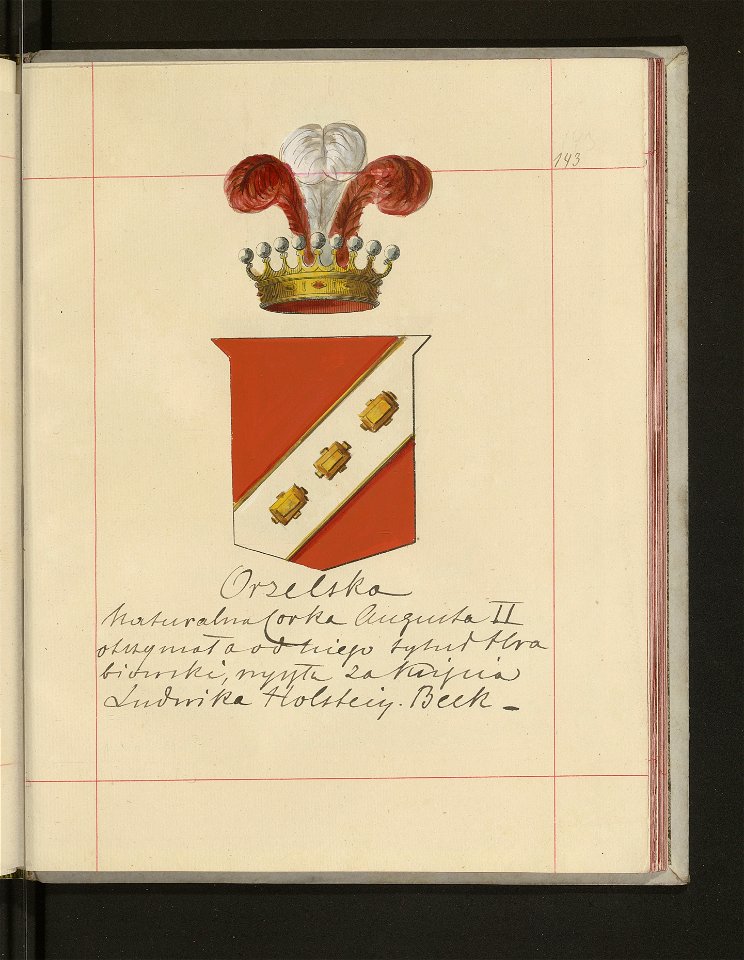 143
Orzelska
Naturalna Corka Augusta II
otrzymała od niego tytuł Hra
biowski, wyszła za Księcia
Ludwika Holstein. Beck -